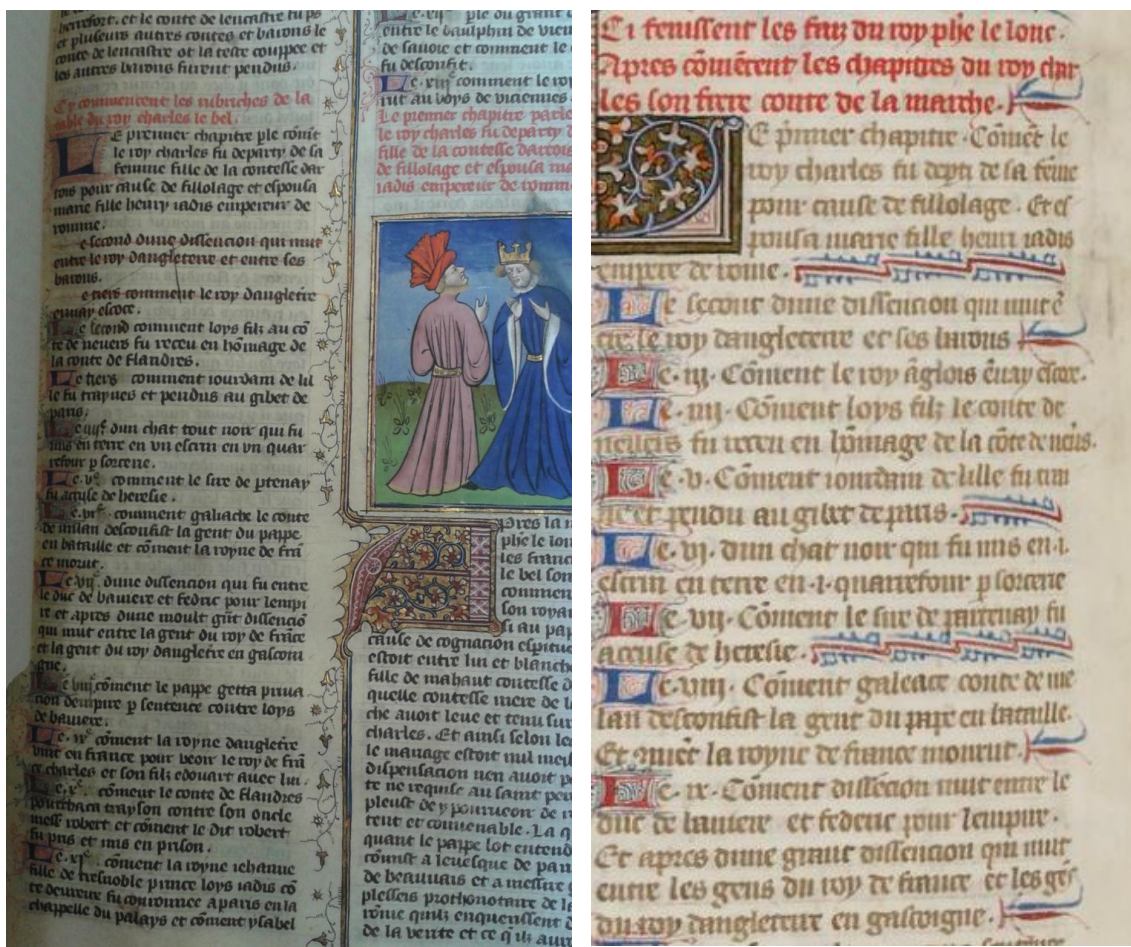 herrefort. et le conte de lencastre fu ps
et pluseurs autres contes et barons le
conte de lencastre ot la teste couppee et
les autres barons furent pendus.
Cy commencent les rubriches de la
table du roy charles le bel.
LE premier chapitre ple cõmt
le roy charles fu departy de sa
femme fille de la contesse dar
tois pour cause de fillolage et espousa
marie fille henry iadis empereur de
romme.
e second dune dissencion qui mut
entre le roy dangleterre et entre ses
barons.
e tiers comment le roy dangletre
enuay escoce.
Le second comment loys filz au cõ
te de neuers fu receu en hõmage de
la conte de flandres.
Le tiers comment iourdam de lil
le fu traynes et pendus au gibet de
paris.
Le iiije dun chat tout noir qui fu
mis en terre en vn escrin en vn quar
refour p sorcerie.
Le .ve. comment le sire de ptenay
fu accuse de heresie.
Le .vie. comment galiache le conte
de milan desconfist la gent du pappe
en bataille et cõment la royne de frã
ce morut.
Le vije. dune dissencion qui fu entre
le duc de bauiere et fedric pour lempi
re et apres dune moult grãt dissencio
qui mut entre la gent du roy de frãce
et la gent du roy dangletre en gascoin
gne.
Le viije. cõment le pappe getta priua
cion dempire p sentence contre loys
de bauiere.
Le .ixe. cõment la royne dangletre
vint en france pour veoir le roy de frã
ce charles et son filz edouart auec lui.
Le .xe. cõment le conte de flandres
pourchaca trayson contre son oncle
mess robert et cõment le dit robert
fu pris et mis en prison.
Le .xie. cõment la royne iehanne
fille de tresnoble prince loys iadis cõ
te deureux fu couronnee a paris en la
chappelle du palays et cõment ysabel
Le .xije. ple du grant
entre le daulphin de vien
de sauoie et comment le
fu desconfit.
Le .xiije comment le roy
rut au boys de viciennes
Le premier chapitre parle
le roy charles fu departy d
fille de la contesse dartois
de fillolage et espousa ma
iadis empereur de romme
Apres la m
phe le lon
les franc
le bel son
commen
son royau
si au pap
cause de cognacion espiritue
estoit entre lui et blanche
fille de mahaut contesse d
quelle contesse mere de la
che auoit leue et tenu sur
charles. Et ainsi selon les
le mariage estoit nul meis
dispensacion nen auoit p
te ne requise au saint per
pleust de y pourueoir de r
tent et conuenable. La q
quant le pappe lot entend
cõmist a leuesque de pari
de beauuais et a messire g
plesseis prothonotaire de la
rõme quilz enquerissent d
de la verite et ce q ilz aur
Ci fenissent les faiz du roy phe le lonc.
Apres cõmẽcent les chapitres du roy char
les son frere conte de la marche.
LE p̃mier chapitre. Cõmẽt le
roy charles fu dep̃ti de sa fẽme
pour cause de fillolage. Et es
pousa marie fille henri iadis
empere de rome.
Le secont dune dissencion qui mut ẽ
tre le roy dangleterre et ses barons
Le. iij. Cõment le roy ãglois ẽuay escoce.
Le. iiij. Cõment loys filz le conte de
neuers fu receu en hõmage de la cõte de neũs.
Le. v. Cõment iourdam de lille fu trai
ne et pendu au gibet de paris.
Le. vj. dun chat noir qui fu mis en .i.
escrin en terre en .i. quarrefour p sorcerie
Le. vij. Cõment le sire de partenay fu
accuse de heresie.
Le. viij. Cõment galeace conte de me
lan desconfist la gent du pape en bataille.
Et cõmẽt la royne de france mourut.
Le. ix. Cõment dissẽcion mut entre le
duc de bauiere et federic pour lempire.
Et apres dune grant dissencion qui mut
entre les gens du roy de france et les gẽs
du roy dangleterre en gascoigne.